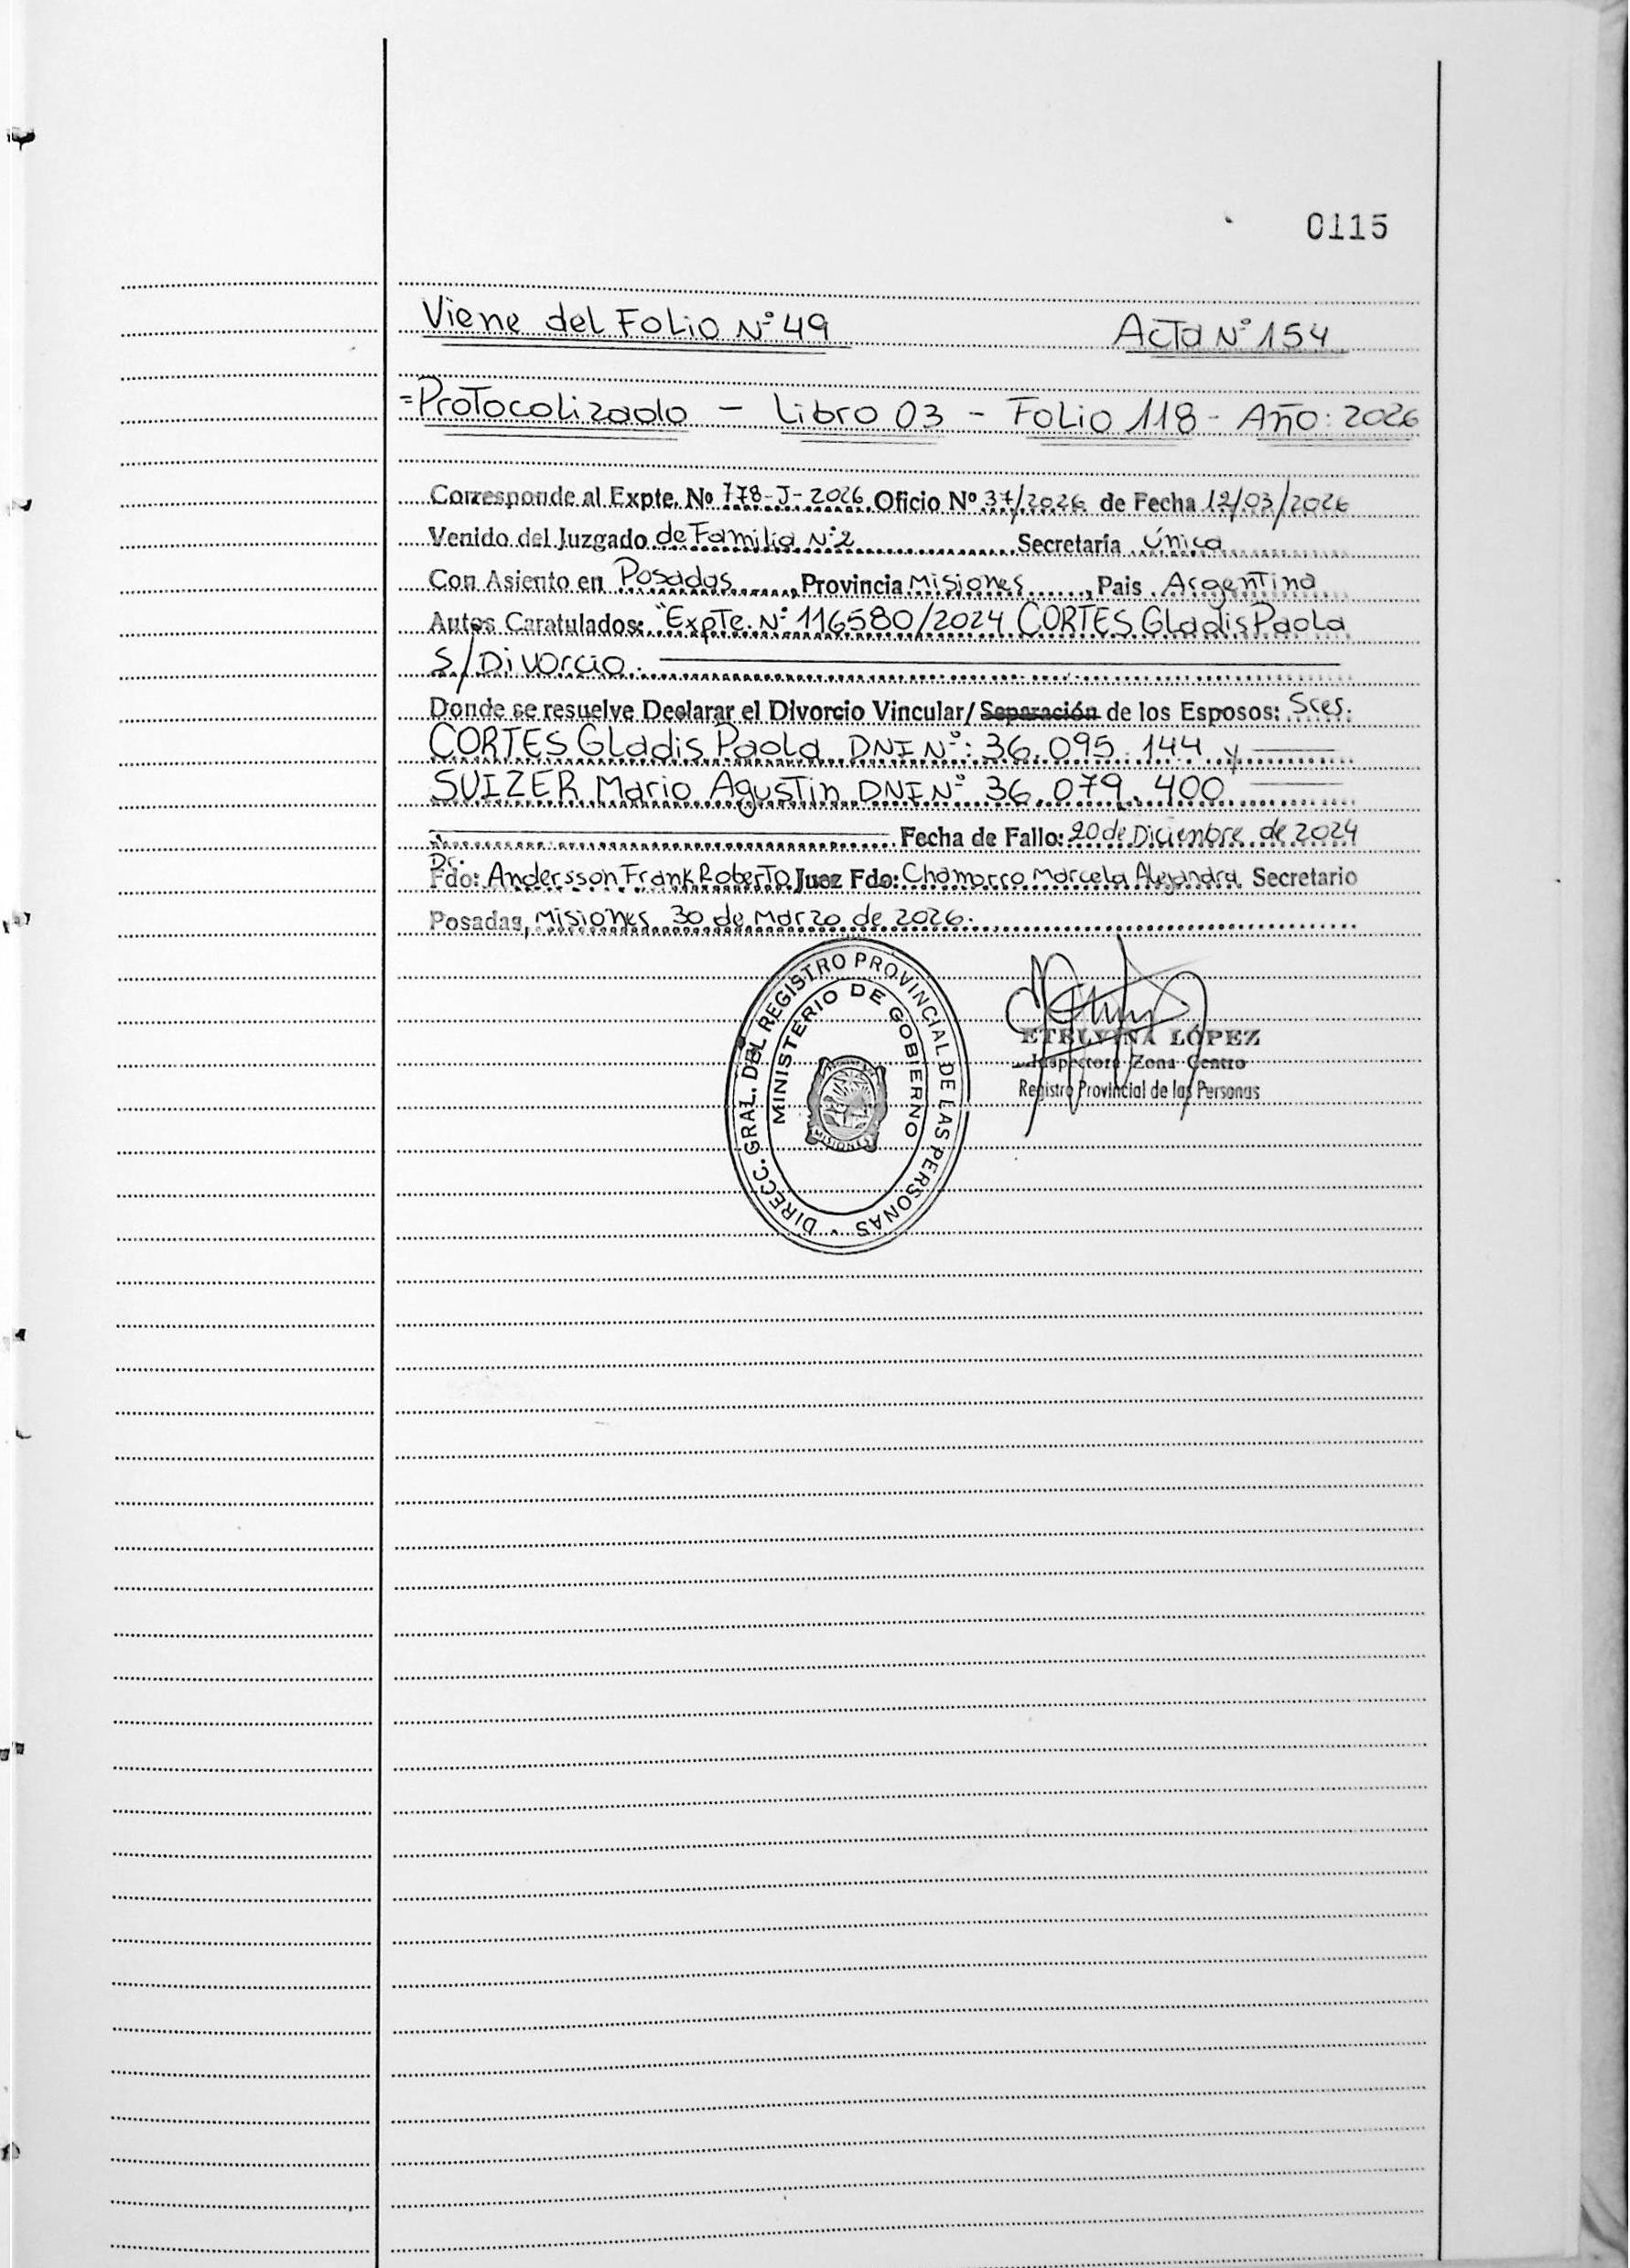 0115
Viene del Folio N° 49 Acta N° 154
=Protocolizado - Libro 03 - Folio 118 - Año: 2026
Corresponde al Expte. Nº 778-J-2026 Oficio Nº 37/2026 de Fecha 12/03/2026
Venido del Juzgado de Familia N°2 Secretaría Única
Con Asiento en Posadas, Provincia Misiones, Pais Argentina
Autos Caratulados: "Expte. N° 116580/2024 CORTES Gladis Paola
S/Divorcio.
Donde se resuelve Declarar el Divorcio Vincular/ Separación de los Esposos: Sres.
CORTES Gladis Paola DNI N°: 36.095.144 y
SUIZER Mario Agustin DNI N° 36.079.400
Fecha de Fallo: 20 de Diciembre de 2024
Dr.
Fdo: Andersson Frank Roberto Juez Fdo: Chamorro Marcela Alejandra Secretario
Posadas, Misiones 30 de Marzo de 2026.
DIRECC. GRAL. DEL REGISTRO PROVINCIAL DE LAS PERSONAS
MINISTERIO DE GOBIERNO
MISIONES
ETELVINA LÓPEZ
Inspectora Zona Centro
Registro Provincial de las Personas